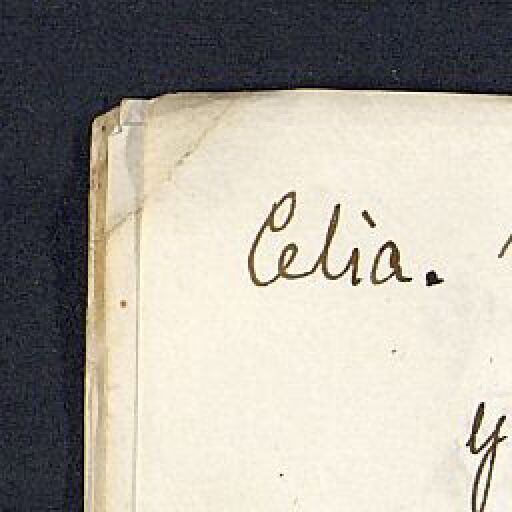 Celia.
y